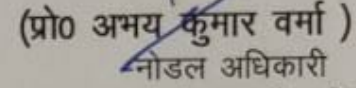 (प्रो0 अभय कुमार वर्मा )
नोडल अधिकारी